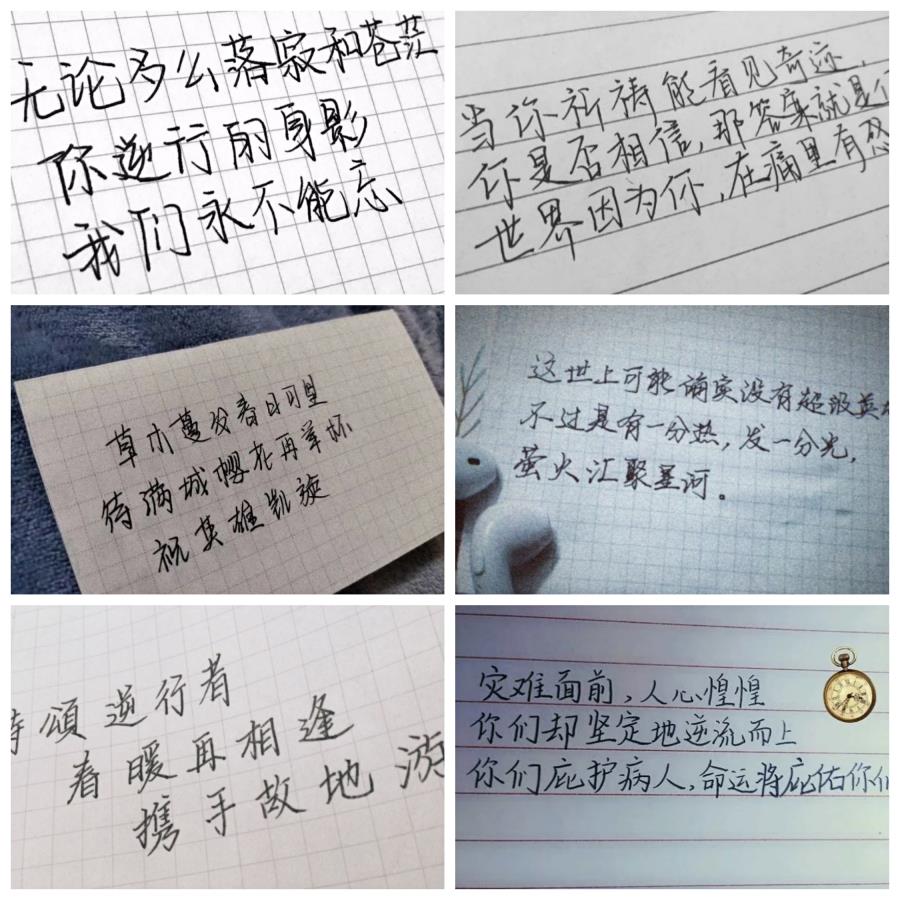 无论多么落寂和苍茫
你逆行的身影
我们永不能忘
当你祈祷能看见奇迹,
你是否相信,那答案就是
世界因为你,在痛里有
草木蔓发春日可望
待满城樱花再举杯
祝英雄凯旋
这世上可能确实没有超级英雄
不过是有一分热,发一分光,
萤火汇聚星河。
诗颂逆行者
春暖再相逢
携手故地游
灾难面前,人心惶惶
你们却坚定地逆流而上
你们庇护病人,命运将庇佑你们